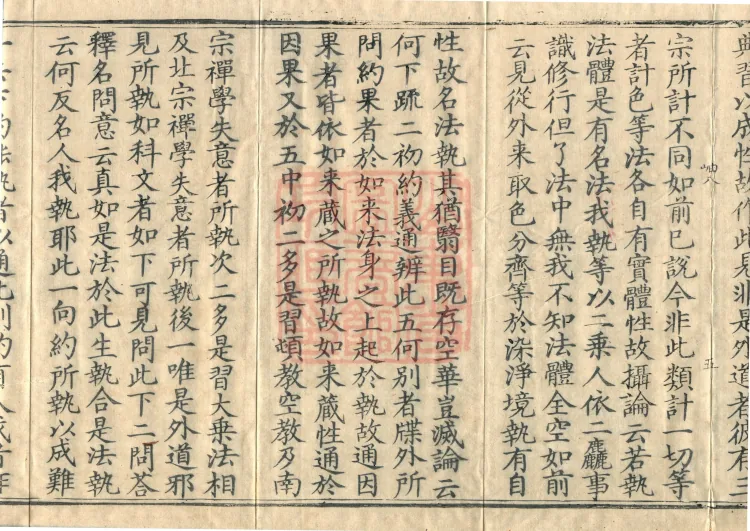 典習以成性故作此是非是外道者彼有三
宗所計不同如前已説今非此類計一切等
者計色等法各自有實體性故攝論云若執
法體是有名法我執等以二乗人依二麤事
識修行但了法中無我不知法體全空如前
云見從外来取色分齊等於染淨境執有自
五
性故名法執其猶翳目既存空華豈滅論云
何下䟽二初約義通辨此五何別者牒外所
問約果者於如来法身之上起於執故通因
果者皆依如来蔵之所執故如来蔵性通於
因果又於五中初二多是習頓教空教及南
宗禪學失意者所執次二多是習大乗法相
及北宗禪學失意者所執後一唯是外道邪
見所執如科文者如下可見問此下二問答
釋名問意云真如是法於此生執合是法執
云何反名人我執耶此一向約所執以成難